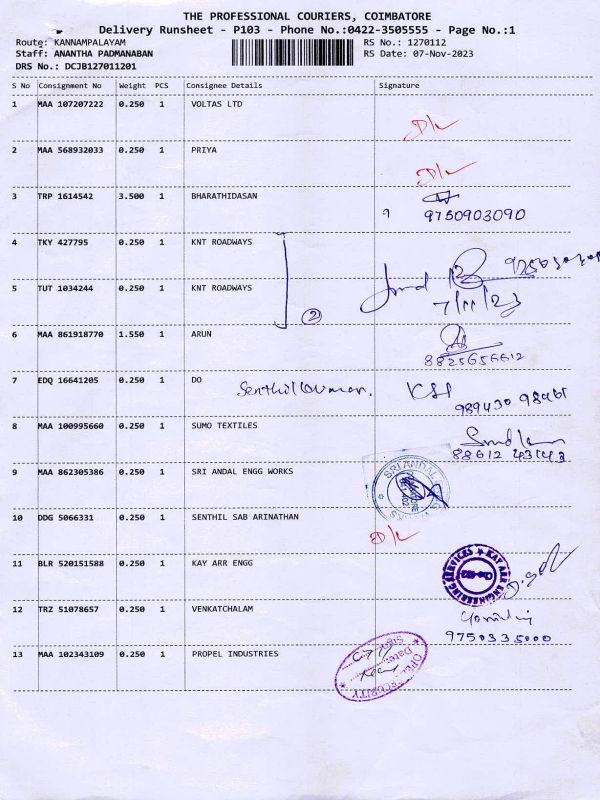 THE PROFESSIONAL COURIERS, COIMBATORE
Delivery Runsheet - P103 - Phone No.:0422-3505555 - Page No.:1
Route: KANNAMPALAYAM
RS No.: 1270112
Staff: ANANTHA PADMANABAN
RS Date: 07-Nov-2023
DRS No.: DCJB127011201
S No Consignment No Weight PCS Consignee Details Signature
1 MAA 107207222 0.250 1 VOLTAS LTD
2 MAA 568932033 0.250 1 PRIYA
3 TRP 1614542 3.500 1 BHARATHIDASAN
9750903090
4 TKY 427795 0.250 1 KNT ROADWAYS
5 TUT 1034244 0.250 1 KNT ROADWAYS
7/11/23
2
6 MAA 861918770 1.550 1 ARUN
8825656612
7 EDQ 16641205 0.250 1 DO
8 MAA 100995660 0.250 1 SUMO TEXTILES
88612 43143
9 MAA 862305386 0.250 1 SRI ANDAL ENGG WORKS
SRI ANDAL
10 DDG 5066331 0.250 1 SENTHIL SAB ARINATHAN
11 BLR 520151588 0.250 1 KAY ARR ENGG
KAY ARR ENGINEERING SERVICES
12 TRZ 51078657 0.250 1 VENKATCHALAM
9750335000
13 MAA 102343109 0.250 1 PROPEL INDUSTRIES
Sign:
Date:
SECURITY